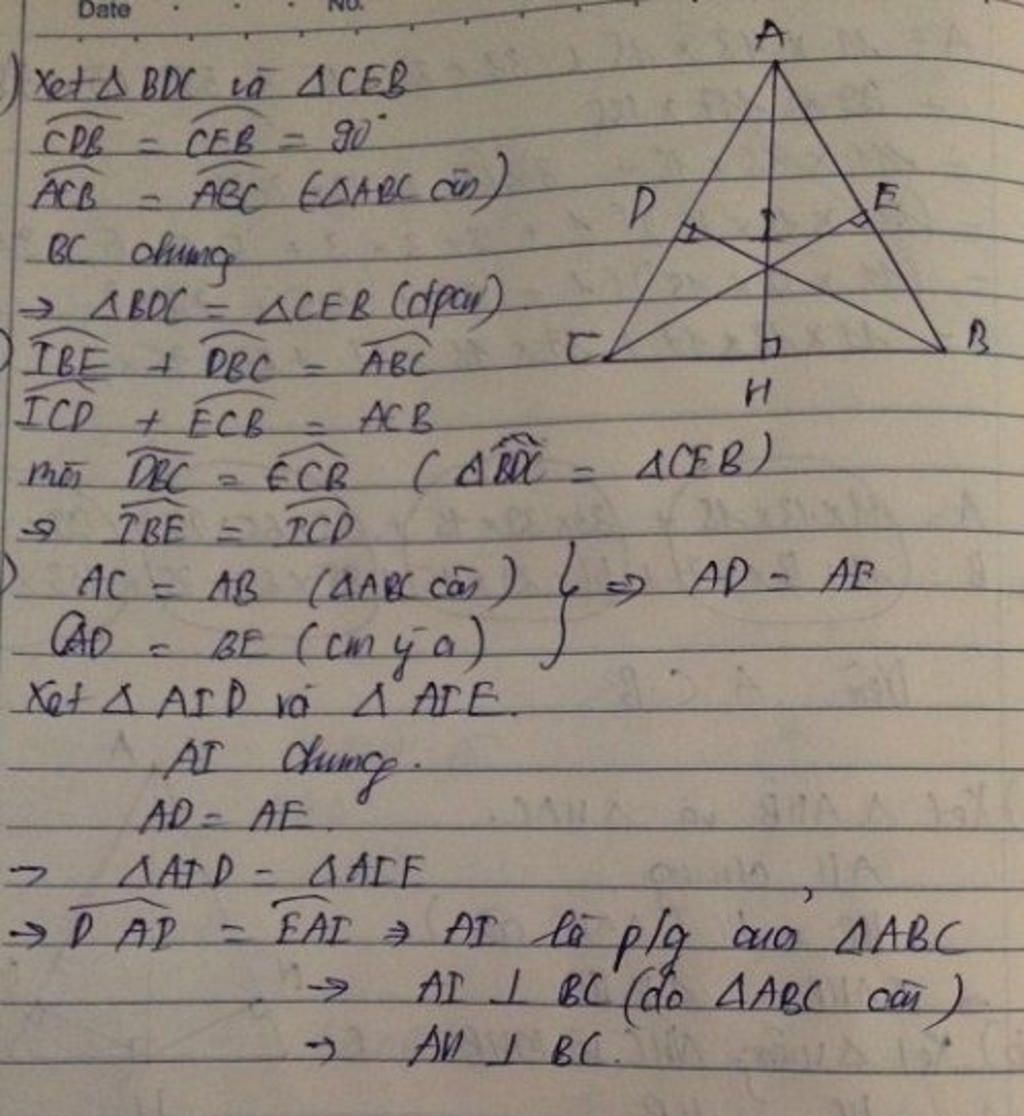 Date No.
A
) Xét Δ BDC và ΔCEB
CDB = CEB = 90°
ACB = ABC (ΔABC cân)
D E
BC chung
→ ΔBDC = ΔCEB (đpcm)
C B
) IBE + DBC = ABC
H
ICD + ECB = ACB
mà DBC = ECB (ΔBDC = ΔCEB)
→ IBE = ICD
) AC = AB (ΔABC cân) } ⇒ AD = AE
CD = BE (cm ý a)
Xét Δ AID và Δ AIE.
AI chung.
AD = AE.
→ ΔAID = ΔAIE
→ DAI = EAI ⇒ AI là p/g của ΔABC
→ AI ⊥ BC (do ΔABC cân)
→ AH ⊥ BC.